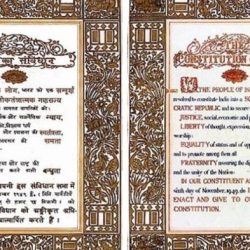 का संविधान
लोग, भारत को एक सम्पूर्ण
लोकतंत्रात्मक गणराज्य
समस्त नागरिकों को:
और राजनैतिक न्याय,
धर्म
स्वतंत्रता,
समता
और राष्ट्र की
बन्धुता
इस संविधान सभा में
संविधान को अंगीकृत
करते हैं।
CONSTITUTION
WE, THE PEOPLE OF IN
resolved to constitute India into a
CRATIC REPUBLIC and to secure
JUSTICE, social, economic and p
LIBERTY of thought, expression
worship;
EQUALITY of status and of opp
and to promote among them all
FRATERNITY assuring the
and the unity of the Nation;
IN OUR CONSTITUENT A
sixth day of November, 1949, do
ENACT AND GIVE TO OUR
CONSTITUTION.